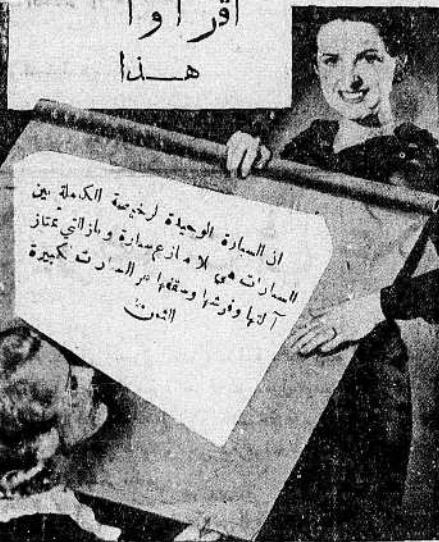 اقرأوا
هذا
ان السيارة الوحيدة لرخيصة الكاملة بين
السيارات هي بلا منازع سيارة والتي تمتاز
آلتها وفرشها وسقفها عن السيارات لكبيرة
الثمن